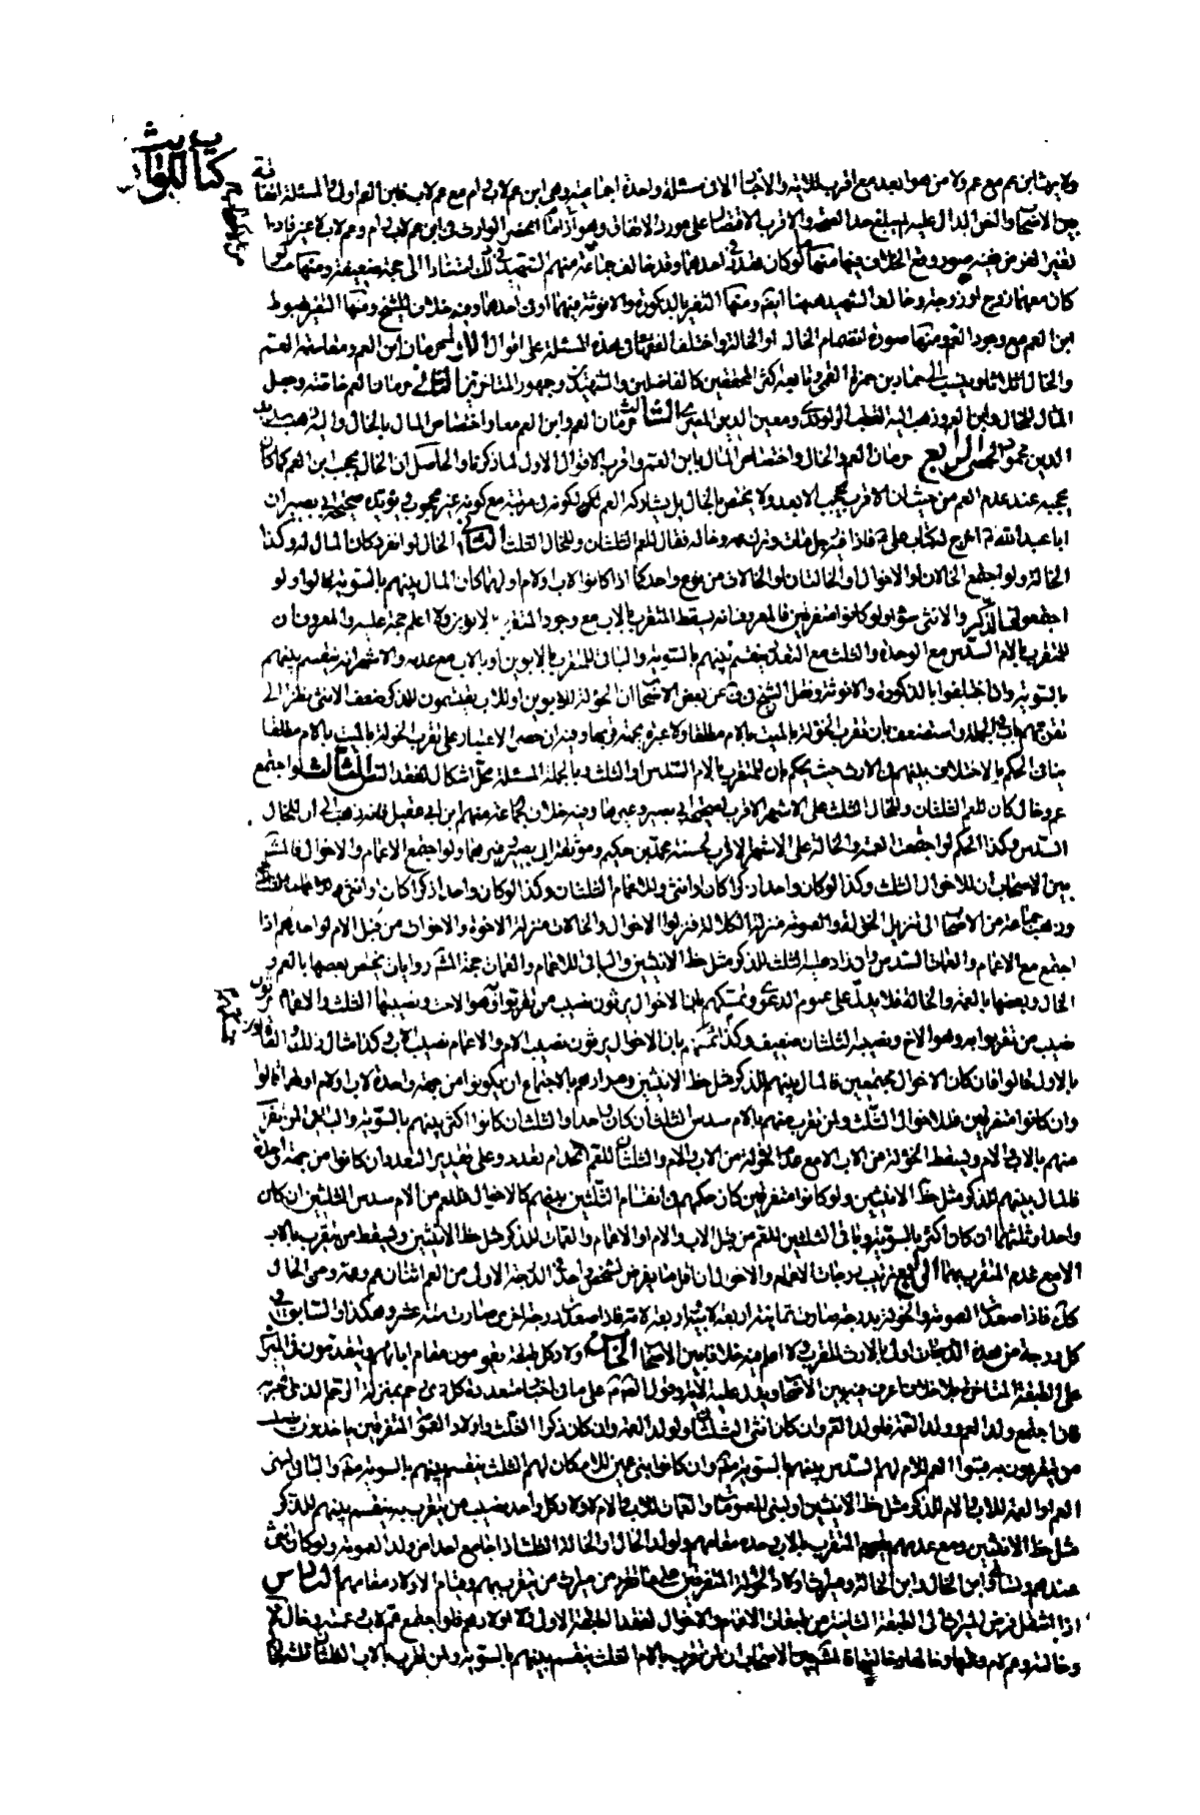 كتاب المواريث
ولا يرث ابن عم مع عم ولا من هو ابعد مع اقرب للاية والاخبار الا في مسئلة واحدة اجماعية وهي ابن عم لاب وام مع عم لاب فابن العم اولى والمسئلة اتفاقية
بين الاصحاب والاقرب الاقتصار على مورد الاتفاق وهو ما اذا انحصر الوارث في ابن عم لاب وام وعم لاب لا غير فاذا
تغير الفرض عنه صورة وقع الخلاف فيها منها ما لو كان هذا في احدهما وقد خالف جماعة منهم الشهيد في ذلك استنادا الى حجة ضعيفة ومنها ما لو
كان معهما زوج او زوجة وخالف الشهيد هيهنا ايضا ومنها التغير بالذكورة والانوثة فيهما او في احدهما وفيه خلاف للشيخ ومنها التغير بهبوط
ابن العم مع وجود العم ومنها صورة انضمام الخال او الخالة واختلف الفقهاء في هذه المسئلة على اقوال الاول حرمان ابن العم ومقاسمة العم
والخال اثلاثا وينسب الى عماد بن حمزة القمي وتابعه اكثر المحققين كالفاضلين والشهيدين وجمهور المتاخرين الثاني حرمان العم خاصة وجعل
المال للخال وابن العم وذهب اليه القطب الراوندي ومعين الدين المصري الثالث حرمان العم وابن العم معا واختصاص المال بالخال واليه ذهب سديد
الدين محمود الحمصي الرابع حرمان العم والخال واختصاص المال بابن العم واقرب الاقوال الاول لما ذكرنا والحاصل ان الخال يحجب ابن العم كما كان
يحجبه عند عدم العم من حيث ان الاقرب يحجب الابعد ولا يختص بالخال بل يشاركه العم لكونه في مرتبة مع كونه غير محجوب ويؤيده صحيحة ابي بصير ان
ابا عبد الله ع اخرج كتاب علي ع فاذا فيه رجل مات وترك عمه وخاله فقال للعم الثلثان وللخال الثلث الثاني الخال لو انفرد كان المال له وكذا
الخالة ولو اجتمع الخالان او الاخوال او الخالتان او الخالات من نوع واحد كما اذا كانوا لاب او لام او لهما كان المال بينهم بالسوية قالوا ولو
اجتمعوا فالذكر والانثى سواء ولو كانوا متفرقين فالمعروف انه يسقط المتقرب بالاب مع وجود المتقرب بالابوين ولا اعلم حجة عليه والمعروف ان
للمتقرب بالام السدس مع الوحدة والثلث مع التعدد يقسم بينهم بالسوية والباقي للمتقرب بالابوين او بالاب مع عدمه والاشهر انه يقسم بينهم
بالسوية وان اختلفوا بالذكورة والانوثة ونقل الشيخ في ف عن بعض الاصحاب ان الخؤلة للابوين او للاب يقتسمون للذكر ضعف الانثى نظرا الى
تقربهم باب في الجملة واستضعف بان تقرب الخؤلة بالميت بالام مطلقا ولا عبرة بجهة قربها وفيه ان حصر الاعتبار على تقرب الخؤلة بالميت بالام مطلقا
ينافي الحكم بالاختلاف بينهم في الارث حيث يحكم بان للمتقرب بالام السدس او الثلث وبالجملة المسئلة محل اشكال لفقد النص الثالث لو اجتمع
عم وخال كان للعم الثلثان وللخال الثلث على الاشهر الاقرب لصحيحة ابي بصير وغيرها وفيه خلاف لجماعة منهم ابن ابي عقيل فانه ذهب الى ان للخال
السدس وكذا الحكم لو اجتمعت العمة والخالة على الاشهر الاقرب لحسنة محمد بن حكيم وموثقة ابي بصير وغيرهما ولو اجتمع الاعمام والاخوال فالمشهور
بين الاصحاب ان للاخوال الثلث وكذا لو كان واحدا ذكرا كان او انثى وللاعمام الثلثان وكذا لو كان واحدا ذكرا كان او انثى
وذهب جماعة من الاصحاب الى تنزيل الخؤلة والعمومة منزلة الكلالة فنزلوا الاخوال والخالات منزلة الاخوة والاخوات من قبل الام لواحدهم اذا
اجتمع مع الاعمام والعمات السدس وان زاد عليه الثلث للذكر مثل حظ الانثيين والباقي للاعمام والعمات حجة المشهور روايات يختص بعضها بالعم و
الخال وبعضها بالعمة والخالة فلا يدل على عموم الدعوى وتمسكهم بان الاخوال يرثون نصيب من تقربوا به وهو الاخت ونصيبها الثلث والاعمام يرثون
نصيب من تقربوا به وهو الاخ ونصيبه الثلثان ضعيف وكذا تمسكهم بان الاخوال يرثون نصيب الام والاعمام نصيب الاب
بالاول قالوا فان كان الاخوال مجتمعين فالمال بينهم للذكر مثل حظ الانثيين ومرادهم بالاجتماع ان يكونوا من جهة واحدة لاب او لام او لهما قالوا
وان كانوا متفرقين فللاخوال الثلث ولمن تقرب منهم بالام سدس الثلث ان كان واحدا والثلث ان كانوا اكثر بينهم بالسوية والباقي لمن تقرب
منهم بالاب والام ويسقط الخؤلة من الاب الا مع عدم الخؤلة من الاب والام والثلثان للعم اتحد ام تعدد وعلى تقدير التعدد ان كانوا من جهة واحدة
فالمال بينهم للذكر مثل حظ الانثيين ولو كانوا متفرقين كان حكمهم في اقتسام الثلثين بينهم كالاخوال فللعم من الام سدس الثلثين ان كان
واحدا وثلثهما ان كان اكثر بالسوية وباقي الثلثين للعم من قبل الاب والام او الاعمام والعمات للذكر مثل حظ الانثيين ويسقط من يتقرب بالاب
الا مع عدم المتقرب بهما الرابع ترتيب درجات الاعمام والاخوال ان اقل ما يفرض لشخص واحد في الدرجة الاولى من العم اثنان عم وعمة ومن الخال
كك فاذا صعدت العمومة والخؤلة بدرجة صارت ثمانية اربعة لابيه واربعة لامه فاذا صعدت درجة اخرى صارت ستة عشر وهكذا والسابق في
كل درجة من هذه الدرجات اولى بالارث للقرب ولا اعلم فيه خلافا بين الاصحاب الخامس اولاد كل طبقة يقومون مقام ابائهم ويتقدمون في الميراث
على الطبقة المتاخرة بلا خلاف اعرف فيه بين الاصحاب ويدل عليه الاية وقولهم ع على ما في اخبار متعددة كل ذي رحم بمنزلة الرحم الذي يجر به
فان اجتمع ولد العم وولد العمة فلولد العم وان كان انثى الثلثان ولولد العمة وان كان ذكرا الثلث واولاد العمومة المتفرقين ياخذون نصيب
من يتقربون به فبنوا العم للام لهم السدس بينهم بالسوية وان كانوا بني عمين للام كان لهم الثلث يقسم بينهم بالسوية والباقي لبني
العم او العمة للاب والام للذكر مثل حظ الانثيين او لبني العمومة او العمات للاب والام لاولاد كل واحد نصيب من يتقرب به يقسم بينهم للذكر
مثل حظ الانثيين ومع عدمهم يقوم المتقرب بالاب وحده مقامهم ولولد الخال او الخالة الثلث اذا جامع احدا من ولد العمومة ولو كان انثى
عندهم وتساوى ابن الخال وابن الخالة وميراث اولاد الخؤلة المتفرقين على ما ظهر من ميراث من يتقرب بهم وقيام الاولاد مقامهم السادس
اذا انتقل فرض الميراث الى الطبقة الثانية من طبقات الاعمام والاخوال لفقد الطبقة الاولى واولادهم فلو اجتمع عم لاب وعمته وخاله
وخالته وعم لام وعمتها وخالها وخالتها فالمشهور بين الاصحاب ان لمن تقرب بالام الثلث يقسم بينهم بالسوية ولمن تقرب بالاب الثلثان